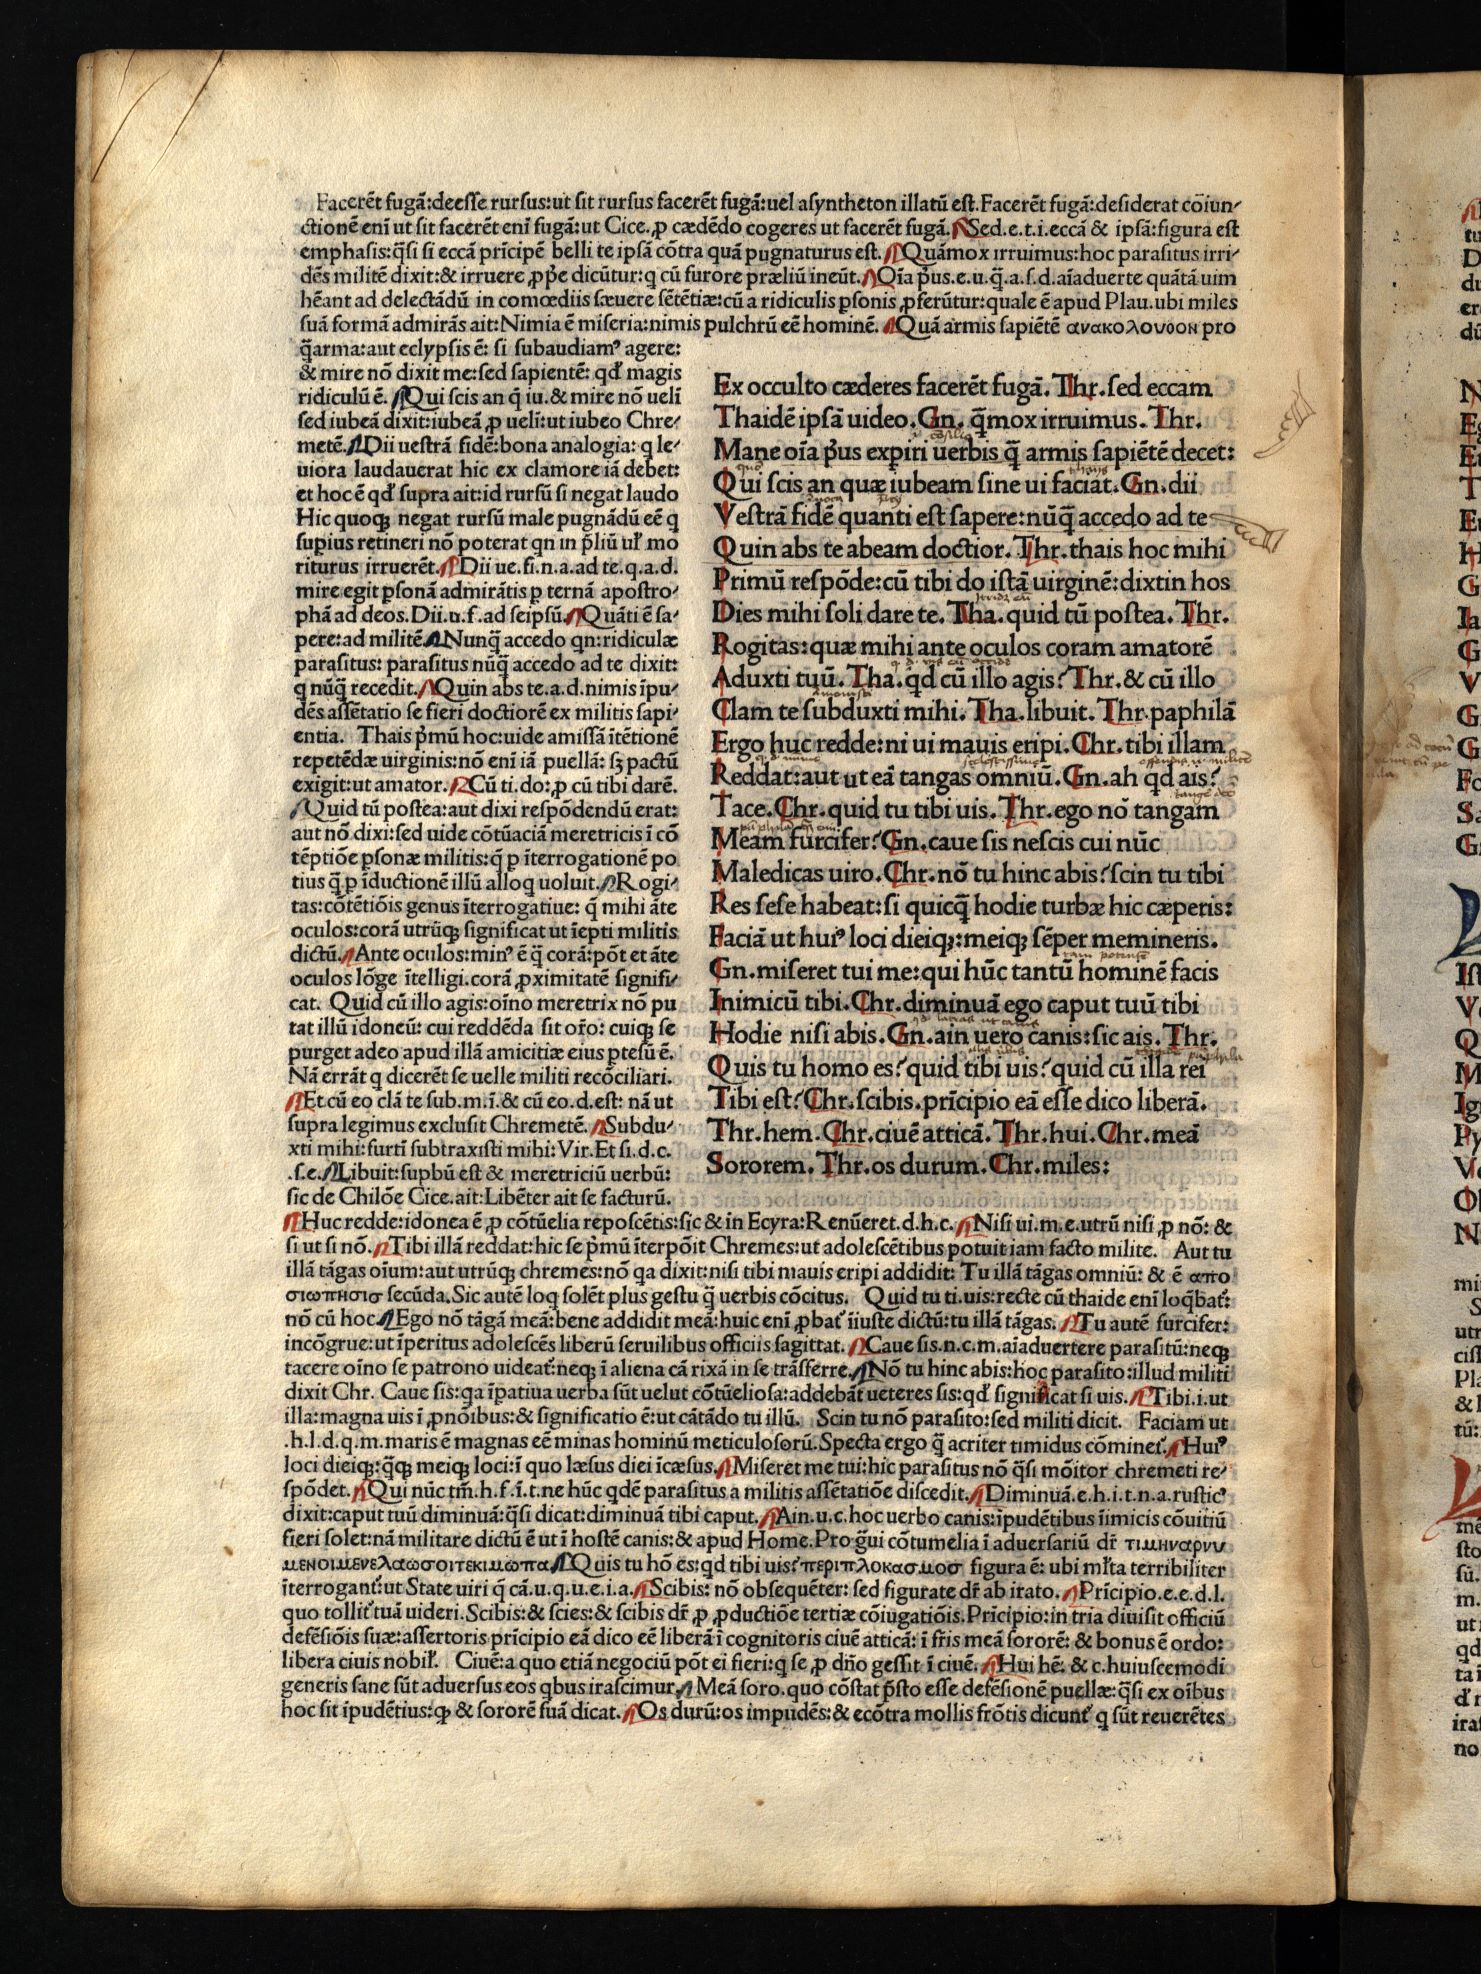 Facerēt fugā:deesse rursus:ut sit rursus facerēt fugā:uel asyntheton illatū est.Facerēt fugā:desiderat cōiun-
ctionē enī ut sit facerēt enī fugā:ut Cice.ꝓ cædēdo cogeres ut facerēt fugā.Sed.e.t.i.eccā & ipsā:figura est
emphasis:q̄si si eccā prīcipē belli te ipsā cōtra quā pugnaturus est.Quāmox irruimus:hoc parasitus irri-
dēs militē dixit:& irruere ꝓp̱e dicūtur:q cū furore præliū ineūt.Oīa pͥus.e.u.q̄.a.s.d.aīaduerte quātā uim
hēant ad delectādū in comœdiis sæuere sētētiæ:cū a ridiculis ꝑsonis ꝓferūtur:quale ē apud Plau.ubi miles
suā formā admirās ait:Nimia ē miseria:nimis pulchrū eē hominē.Quā armis sapiētē ανακολουθον pro
q̄arma:aut eclypsis ē: si subaudiamꝰ agere:
& mire nō dixit me:sed sapientē: qđ magis
ridiculū ē.Qui scis an q̄ iu.& mire nō uelī
sed iubeā dixit:iubeā ꝓ ueli:ut iubeo Chre-
metē.Dii uestrā fidē:bona analogia: q le-
uiora laudauerat hic ex clamore iā debet:
et hoc ē qđ supra ait:id rursū si negat laudo
Hic quoqꝫ negat rursū male pugnādū eē q
supius retineri nō poterat qn in p̄liū uł mo
riturus irruerēt.Dii ue.fi.n.a.ad te.q.a.d.
mire egit ꝑsonā admirātis ꝑ ternā apostro-
phā ad deos.Dii.u.f.ad seipsū.Quāti ē sa-
pere:ad militē.Nunq̄ accedo qn:ridiculæ
parasitus: parasitus nūq̄ accedo ad te dixit:
q nūq̄ recedit.Quin abs te.a.d.nimis īpu-
dēs assētatio se fieri doctiorē ex militis sapi-
entia. Thais pͥmū hoc:uide amissā ītētionē
repetēdæ uirginis:nō enī iā puellā: sꝫ pactū
exigit:ut amator.Cū ti.do:ꝓ cū tibi darē.
Quid tū postea:aut dixi respōdendū erat:
aut nō dixi:sed uide cōtūaciā meretricis ī cō
tēptiōe ꝑsonæ militis:q̄ ꝑ īterrogationē po
tius q̄ ꝑ īductionē illū alloq uoluit.Rogi-
tas:cōtētiōis genus īterrogatiue: q̄ mihi āte
oculos:corā utrūqꝫ significat ut īepti militis
dictū.Ante oculos:minꝰ ē q̄ corā:pōt et āte
oculos lōge ītelligi.corā ꝓximitatē signifi-
cat. Quid cū illo agis:oīno meretrix nō pu
tat illū idoneū: cui reddēda sit or̄o: cuiqꝫ se
purget adeo apud illā amicitiæ eius ptesū ē.
Nā errāt q dicerēt se uelle militi recōciliari.
Et cū eo clā te sub.m.ī.& cū eo.d.est: nā ut
supra legimus exclusit Chremetē.Subdu-
xti mihi:furtī subtraxisti mihi:Vir.Et si.d.c.
.s.e.Libuit:supbū est & meretriciū uerbū:
sic de Chilōe Cice.ait:Libēter ait se facturū.
Ex occulto cæderes facerēt fugā. Thr.sed eccam
Thaidē ipsā uideo.Gn. q̄mox irruimus. Thr.
Mane oīa pͥus expiri uerbis q̄ armis sapiētē decet:
Qui scis an quæ iubeam sine ui faciat.Gn.dii
Vestrā fidē quanti est sapere:nūq̄ accedo ad te
Quin abs te abeam doctior. Thr.thais hoc mihi
Primū respōde:cū tibi do istā uirginē:dixtin hos
Dies mihi soli dare te. Tha.quid tū postea. Thr.
Rogitas:quæ mihi ante oculos coram amatorē
Aduxti tuū. Tha.qd cū illo agis? Thr.& cū illo
Clam te subduxti mihi. Tha.libuit. Thr.paphilā
Ergo huc redde:ni ui mauis eripi.Chr.tibi illam
Reddat:aut ut eā tangas omniū.Gn.ah qd ais?
Tace.Chr.quid tu tibi uis. Thr.ego nō tangam
Meam furcifer?Gn.caue sis nescis cui nūc
Maledicas uiro.Chr.nō tu hinc abis?scin tu tibi
Res sese habeat:si quicq̄ hodie turbæ hic cæperis:
Faciā ut huiꝰ loci dieiqꝫ:meiqꝫ sēper memineris.
Gn.miseret tui me:qui hūc tantū hominē facis
Inimicū tibi.Chr.diminuā ego caput tuū tibi
Hodie nisi abis.Gn.ain uero canis:sic ais. Thr.
Quis tu homo es?quid tibi uis?quid cū illa rei
Tibi est?Chr.scibis.prīcipio eā esse dico liberā.
Thr.hem.Chr.ciuē atticā.Thr.hui.Chr.meā
Sororem. Thr.os durum.Chr.miles:
Huc redde:idonea ē ꝓ cōtūelia reposcētis:sic & in Ecyra:Renūeret.d.h.c.Nisi ui.m.e.utrū nisi ꝓ nō: &
si ut si nō.Tibi illā reddat:hic se pͥmū īterpōit Chremes:ut adolescētibus potuit iam facto milite. Aut tu
illā tāgas oīum:aut utrūqꝫ chremes:nō qa dixit:nisi tibi mauis eripi addidit: Tu illā tāgas omniū: & ē απο
σιωπησισ secūda.Sic autē loq solēt plus gestu q̄ uerbis cōcitus. Quid tu ti.uis:recte cū thaide enī loq̄bat᷑:
nō cū hoc.Ego nō tāgā meā:bene addidit meā:huic enī ꝓbat᷑ īiuste dictū:tu illā tāgas.Tu autē furcifer:
incōgrue:ut īperitus adolescēs liberū seruilibus officiis sagittat.Caue sis.n.c.m.aīaduertere parasitū:neqꝫ
tacere oīno se patrono uideat᷑:neqꝫ ī aliena cā rixā in se trāsferre.Nō tu hinc abis:hoc parasito:illud militi
dixit Chr. Caue sis:qa īpatiua uerba sūt uelut cōtūeliosa:addebāt ueteres sis:qđ significat si uis.Tibi.i.ut
illa:magna uis ī ꝓnōibus:& significatio ē:ut cātādo tu illū. Scin tu nō parasito:sed militi dicit. Faciam ut
.h.l.d.q.m.maris ē magnas eē minas hominū meticulosorū.Specta ergo q̄ acriter timidus cōminet᷑.Huiꝰ
loci dieiqꝫ:q̄qꝫ meiqꝫ loci:ī quo læsus diei īcæsus.Miseret me tui:hic parasitus nō q̄si mōitor chremeti re-
spōdet.Qui nūc tm̄.h.f.ī.t.ne hūc qdē parasitus a militis assētatiōe discedit.Diminuā.e.h.i.t.n.a.rusticꝰ
dixit:caput tuū diminuā:q̄si dicat:diminuā tibi caput.Ain.u.c.hoc uerbo canis:īpudētibus īimicis cōuitiū
fieri solet:nā militare dictū ē ut ī hostē canis:& apud Home.Pro ḡui cōtumelia ī aduersariū dr̄ τιμηναρνυ
μενοιμενελαωσοιτεκιμωπα.Quis tu hō es:qd tibi uis?περιπλοκασμοσ figura ē: ubi mł̄ta terribiliter
īterrogant᷑:ut State uiri q̄ cā.u.q.u.e.i.a.Scibis: nō obsequēter: sed figurate dr̄ ab irato.Prīcipio.e.e.d.l.
quo tollit᷑ tuā uideri.Scibis:& scies:& scibis dr̄ ꝓ ꝓductiōe tertiæ cōiugatiōis.Prīcipio:in tria diuisit officiū
defēsiōis suæ:assertoris prīcipio eā dico eē liberā ī cognitoris ciuē atticā: ī fr̄is meā sororē: & bonus ē ordo:
libera ciuis nobił. Ciuē:a quo etiā negociū pōt ei fieri:q se ꝓ dn̄o gessit ī ciuē.Hui hē: & c.huiuscemodi
generis sane sūt aduersus eos qbus irascimur.Meā soro.quo cōstat p̄sto esse defēsionē puellæ:q̄si ex oībus
hoc sit īpudētius:ꝙ & sororē suā dicat.Os durū:os impudēs:& ecōtra mollis frōtis dicunt᷑ q sūt reuerētes